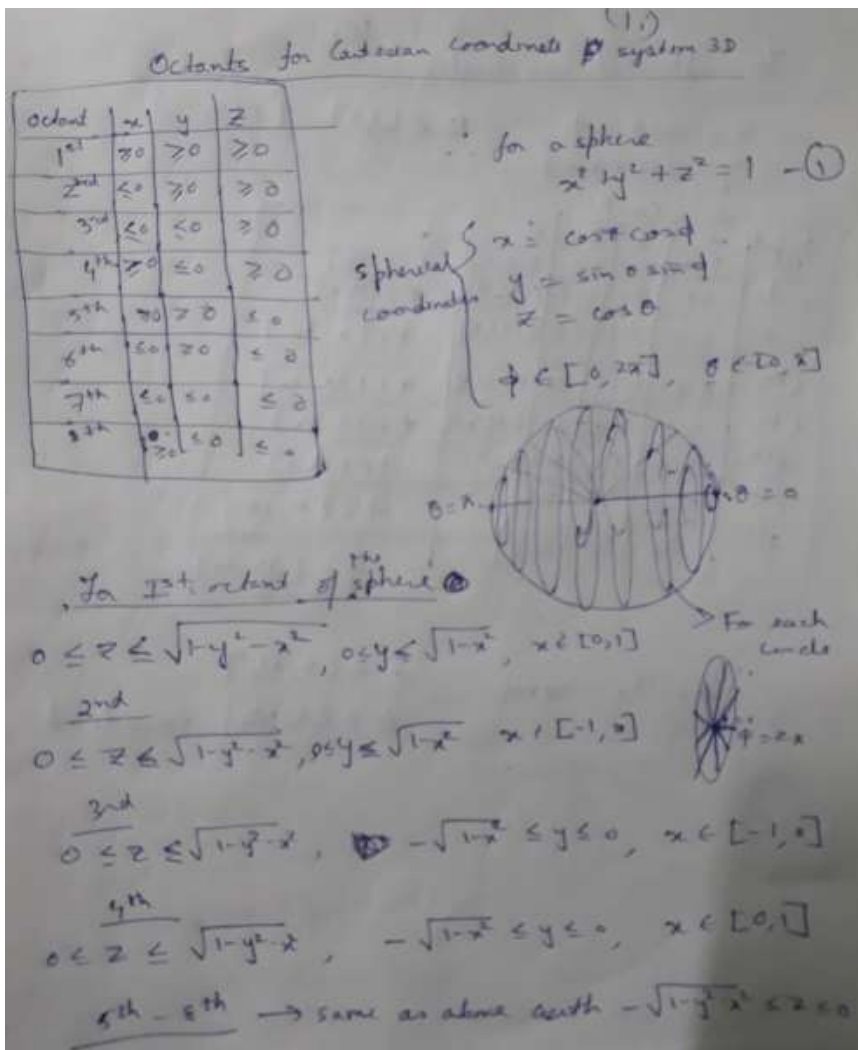 (1.)
Octants for Cartesian coordinate system 3D
octant | x | y | z
1st | ≥0 | ≥0 | ≥0
2nd | ≤0 | ≥0 | ≥0
3rd | ≤0 | ≤0 | ≥0
4th | ≥0 | ≤0 | ≥0
5th | ≥0 | ≥0 | ≤0
6th | ≤0 | ≥0 | ≤0
7th | ≤0 | ≤0 | ≤0
8th | ≥0 | ≤0 | ≤0
∴ for a sphere
x² + y² + z² = 1 - ①
spherical coordinates
x = cosθ cosϕ
y = sinθ sinϕ
z = cosθ
ϕ ∈ [0, 2π], θ ∈ [0, π]
θ = π
θ = 0
For each circle
ϕ = 2π
For Ist octant of the sphere
0 ≤ z ≤ √(1-y²-x²), 0≤y≤ √(1-x²), x ∈ [0,1]
2nd
0 ≤ z ≤ √(1-y²-x²), 0≤y≤ √(1-x²) x ∈ [-1, 0]
3rd
0 ≤ z ≤ √(1-y²-x²), -√(1-x²) ≤ y ≤ 0, x ∈ [-1, 0]
4th
0 ≤ z ≤ √(1-y²-x²), -√(1-x²) ≤ y ≤ 0, x ∈ [0,1]
5th - 8th → same as above with -√(1-y²-x²) ≤ z ≤ 0